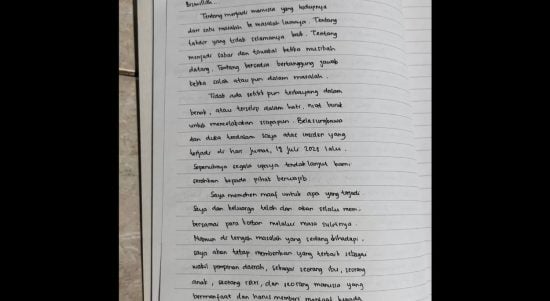 Bismillah...
Tentang menjadi manusia yang hidupnya
dari satu masalah ke masalah lainnya. Tentang
takdir yang tidak selamanya baik. Tentang
menjadi sabar dan tawakal ketika musibah
datang. Tentang bersedia bertanggung jawab
ketika salah atau pun dalam masalah.
Tidak ada sedikit pun terbayang dalam
benak, atau terselip dalam hati, niat buruk
untuk mencelakakan siapapun. Belasungkawa
dan duka terdalam saya atas insiden yang
terjadi di hari Jumat, 18 Juli 2025 lalu.
Sepenuhnya segala upaya tindak lanjut kami
serahkan kepada pihak berwajib.
Saya memohon maaf untuk apa yang terjadi
Saya dan keluarga telah dan akan selalu mem-
bersamai para korban melalui masa sulitnya.
Namun di tengah masalah yang sedang dihadapi,
saya akan tetap memberikan yang terbaik sebagai
wakil pimpinan daerah, sebagai seorang ibu, seorang
anak, seorang istri, dan seorang manusia yang
bermanfaat dan harus memberi manfaat kepada